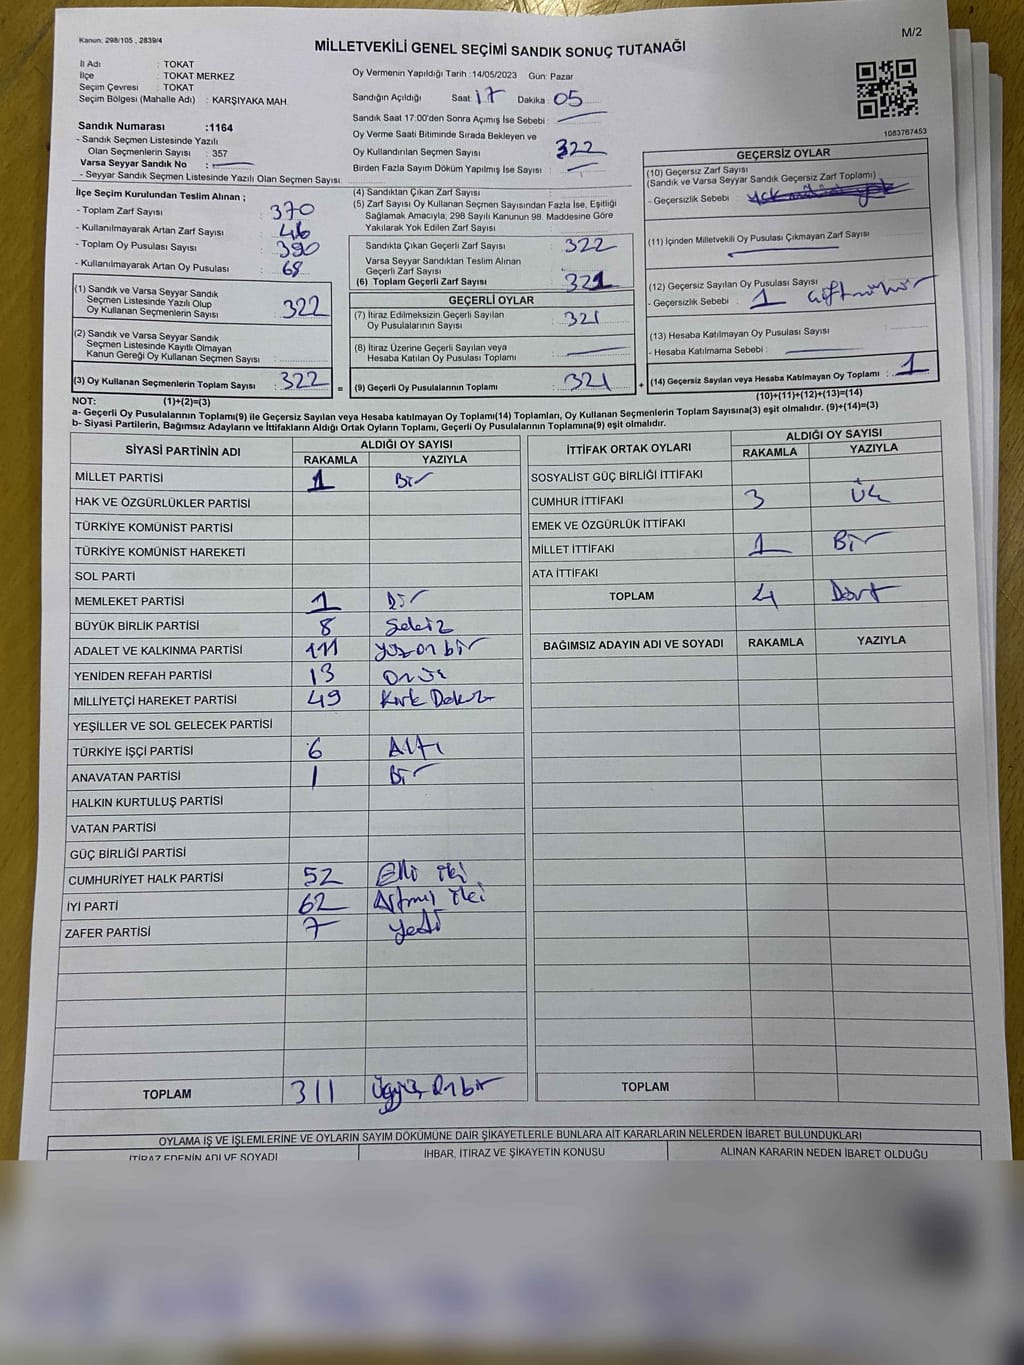 Kanun, 298/105 , 2839/4
M/2
MİLLETVEKİLİ GENEL SEÇİMİ SANDIK SONUÇ TUTANAĞI
İl Adı : TOKAT
İlçe : TOKAT MERKEZ
Seçim Çevresi : TOKAT
Seçim Bölgesi (Mahalle Adı) : KARŞIYAKA MAH.
Oy Vermenin Yapıldığı Tarih : 14/05/2023 Gün: Pazar
Sandığın Açıldığı Saat: 17 Dakika : 05
Sandık Saat 17:00'den Sonra Açımış İse Sebebi :
Oy Verme Saati Bitiminde Sırada Bekleyen ve
Oy Kullandırılan Seçmen Sayısı 322
Birden Fazla Sayım Döküm Yapılmış İse Sayısı :
1083767453
Sandık Numarası :1164
- Sandık Seçmen Listesinde Yazılı
Olan Seçmenlerin Sayısı : 357
Varsa Seyyar Sandık No :
- Seyyar Sandık Seçmen Listesinde Yazılı Olan Seçmen Sayısı:
İlçe Seçim Kurulundan Teslim Alınan ;
- Toplam Zarf Sayısı : 370
- Kullanılmayarak Artan Zarf Sayısı : 46
- Toplam Oy Pusulası Sayısı : 390
- Kullanılmayarak Artan Oy Pusulası : 68
(1) Sandık ve Varsa Seyyar Sandık
Seçmen Listesinde Yazılı Olup
Oy Kullanan Seçmenlerin Sayısı : 322
(2) Sandık ve Varsa Seyyar Sandık
Seçmen Listesinde Kayıtlı Olmayan
Kanun Gereği Oy Kullanan Seçmen Sayısı :
(3) Oy Kullanan Seçmenlerin Toplam Sayısı : 322
(1)+(2)=(3)
(4) Sandıktan Çıkan Zarf Sayısı :
(5) Zarf Sayısı Oy Kullanan Seçmen Sayısından Fazla İse, Eşitliği
Sağlamak Amacıyla, 298 Sayılı Kanunun 98. Maddesine Göre
Yakılarak Yok Edilen Zarf Sayısı :
Sandıkta Çıkan Geçerli Zarf Sayısı : 322
Varsa Seyyar Sandıktan Teslim Alınan
Geçerli Zarf Sayısı :
(6) Toplam Geçerli Zarf Sayısı : 321
GEÇERLİ OYLAR
(7) İtiraz Edilmeksizin Geçerli Sayılan
Oy Pusulalarının Sayısı : 321
(8) İtiraz Üzerine Geçerli Sayılan veya
Hesaba Katılan Oy Pusulası Toplamı :
= (9) Geçerli Oy Pusulalarının Toplamı : 321
GEÇERSİZ OYLAR
(10) Geçersiz Zarf Sayısı
(Sandık ve Varsa Seyyar Sandık Geçersiz Zarf Toplamı)
- Geçersizlik Sebebi
(11) İçinden Milletvekili Oy Pusulası Çıkmayan Zarf Sayısı
(12) Geçersiz Sayılan Oy Pusulası Sayısı
- Geçersizlik Sebebi : 1 çift mühür
(13) Hesaba Katılmayan Oy Pusulası Sayısı
- Hesaba Katılmama Sebebi :
+ (14) Geçersiz Sayılan veya Hesaba Katılmayan Oy Toplamı : 1
(10)+(11)+(12)+(13)=(14)
NOT:
a- Geçerli Oy Pusulasının Toplamı(9) ile Geçersiz Sayılan veya Hesaba katılmayan Oy Toplamı(14) Toplamları, Oy Kullanan Seçmenlerin Toplam Sayısına(3) eşit olmalıdır. (9)+(14)=(3)
b- Siyasi Partilerin, Bağımsız Adayların ve İttifakların Aldığı Ortak Oyların Toplamı, Geçerli Oy Pusulalarının Toplamına(9) eşit olmalıdır.
SİYASİ PARTİNİN ADI ALDIĞI OY SAYISI
RAKAMLA YAZIYLA
MİLLET PARTİSİ 1 Bir
HAK VE ÖZGÜRLÜKLER PARTİSİ
TÜRKİYE KOMÜNİST PARTİSİ
TÜRKİYE KOMÜNİST HAREKETİ
SOL PARTİ
MEMLEKET PARTİSİ 1 Bir
BÜYÜK BİRLİK PARTİSİ 8 Sekiz
ADALET VE KALKINMA PARTİSİ 111 yüzonbir
YENİDEN REFAH PARTİSİ 13 onüç
MİLLİYETÇİ HAREKET PARTİSİ 49 Kırk Dokuz
YEŞİLLER VE SOL GELECEK PARTİSİ
TÜRKİYE İŞÇİ PARTİSİ 6 Altı
ANAVATAN PARTİSİ 1 Bir
HALKIN KURTULUŞ PARTİSİ
VATAN PARTİSİ
GÜÇ BİRLİĞİ PARTİSİ
CUMHURİYET HALK PARTİSİ 52 Elli iki
İYİ PARTİ 62 Altmış iki
ZAFER PARTİSİ 7 yedi
TOPLAM 311 Üçyüz Onbir
İTTİFAK ORTAK OYLARI ALDIĞI OY SAYISI
RAKAMLA YAZIYLA
SOSYALİST GÜÇ BİRLİĞİ İTTİFAKI
CUMHUR İTTİFAKI 3 Üç
EMEK VE ÖZGÜRLÜK İTTİFAKI
MİLLET İTTİFAKI 1 Bir
ATA İTTİFAKI
TOPLAM 4 Dört
BAĞIMSIZ ADAYIN ADI VE SOYADI RAKAMLA YAZIYLA
TOPLAM
OYLAMA İŞ VE İŞLEMLERİNE VE OYLARIN SAYIM DÖKÜMÜNE DAİR ŞİKAYETLERLE BUNLARA AİT KARARLARIN NELERDEN İBARET BULUNDUKLARI
İTİRAZ EDENİN ADI VE SOYADI İHBAR, İTİRAZ VE ŞİKAYETİN KONUSU ALINAN KARARIN NEDEN İBARET OLDUĞU